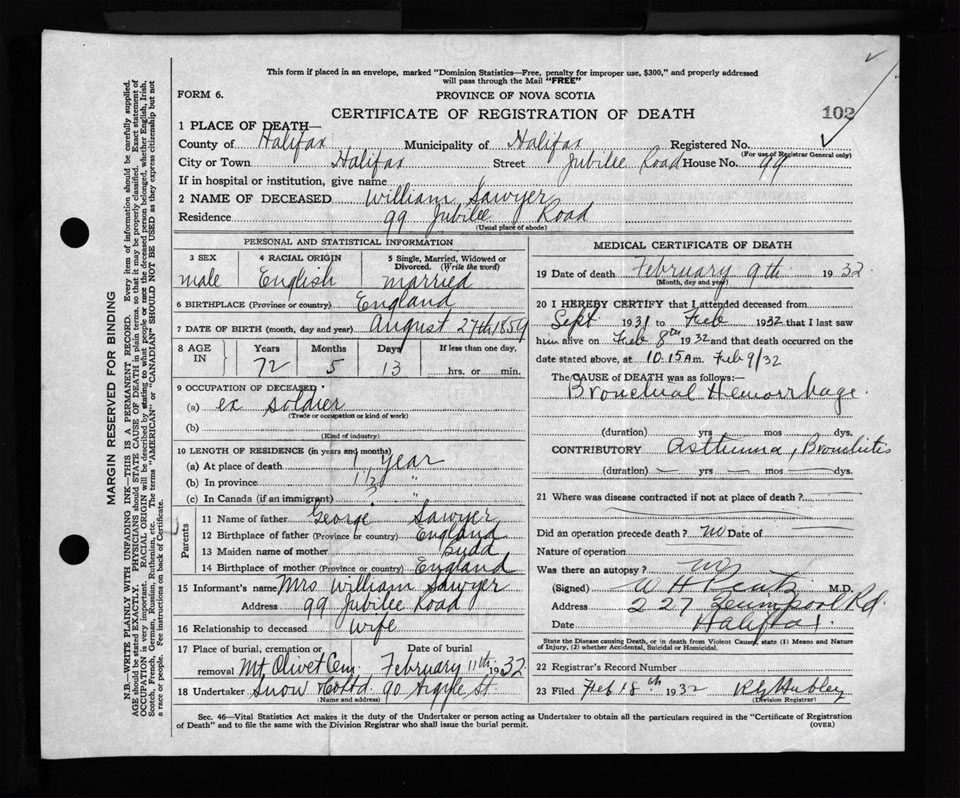 This form if placed in an envelope, marked "Dominion Statistics—Free, penalty for improper use, $300," and properly addressed
will pass through the Mail "FREE"
FORM 6.
PROVINCE OF NOVA SCOTIA
CERTIFICATE OF REGISTRATION OF DEATH
102
1 PLACE OF DEATH—
County of Halifax Municipality of Halifax Registered No.
(For use of Registrar General only)
City or Town Halifax Street Jubilee Road House No. 99
If in hospital or institution, give name
2 NAME OF DECEASED William Sawyer
Residence 99 Jubilee Road
(Usual place of abode)
PERSONAL AND STATISTICAL INFORMATION
3 SEX 4 RACIAL ORIGIN 5 Single, Married, Widowed or Divorced. (Write the word)
male English married
6 BIRTHPLACE (Province or country) England
7 DATE OF BIRTH (month, day and year) August 27th, 1859
8 AGE IN Years Months Days If less than one day,
72 5 13 hrs. or min.
9 OCCUPATION OF DECEASED
(a) ex soldier
(Trade or occupation or kind of work)
(b)
(Kind of industry)
10 LENGTH OF RESIDENCE (in years and months)
(a) At place of death 1 year
(b) In province 1 1/2 "
(c) In Canada (if an immigrant) "
Parents
11 Name of father George Sawyer
12 Birthplace of father (Province or country) England
13 Maiden name of mother Judd
14 Birthplace of mother (Province or country) England
15 Informant's name Mrs William Sawyer
Address 99 Jubilee Road
16 Relationship to deceased wife
17 Place of burial, cremation or removal Mt Olivet Cem. Date of burial February 11th 1932
18 Undertaker Snow & Co Ltd. 90 Argyle St.
(Name and address)
MEDICAL CERTIFICATE OF DEATH
19 Date of death February 9th 1932
(Month, day and year)
20 I HEREBY CERTIFY that I attended deceased from
Sept 1931 to Feb 1932 that I last saw
him alive on Feb 8th 1932 and that death occurred on the
date stated above, at 10.15 A m. Feb 9/32
The CAUSE of DEATH was as follows:—
Bronchial Hemorrhage.
(duration) yrs mos dys.
CONTRIBUTORY Asthma, Bronchitis
(duration) — yrs — mos — dys.
21 Where was disease contracted if not at place of death?
Did an operation precede death? no Date of
Nature of operation
Was there an autopsy? no
(Signed) W H M.D.
Address 227 Rd.
Date Halifax.
State the Disease causing Death, or in death from Violent Causes, state (1) Means and Nature
of Injury, (2) whether Accidental, Suicidal or Homicidal.
22 Registrar's Record Number
23 Filed Feb 18th 1932 Hubley
(Division Registrar)
Sec. 46—Vital Statistics Act makes it the duty of the Undertaker or person acting as Undertaker to obtain all the particulars required in the "Certificate of Registration
of Death" and to file the same with the Division Registrar who shall issue the burial permit. (OVER)
MARGIN RESERVED FOR BINDING
N.B.—WRITE PLAINLY WITH UNFADING INK—THIS IS A PERMANENT RECORD. Every item of information should be carefully supplied.
AGE should be stated EXACTLY. PHYSICIANS should STATE CAUSE OF DEATH in plain terms, so that it may be properly classified. Exact statement of
OCCUPATION is very important. RACIAL ORIGIN will be described by stating to what people or race the deceased person belonged, whether English, Irish,
Scotch, French, German, Russian, Ruthenian, etc. The terms "AMERICAN" or "CANADIAN" SHOULD NOT BE USED as they express citizenship but not
a race or people. Fee instructions on back of Certificate.